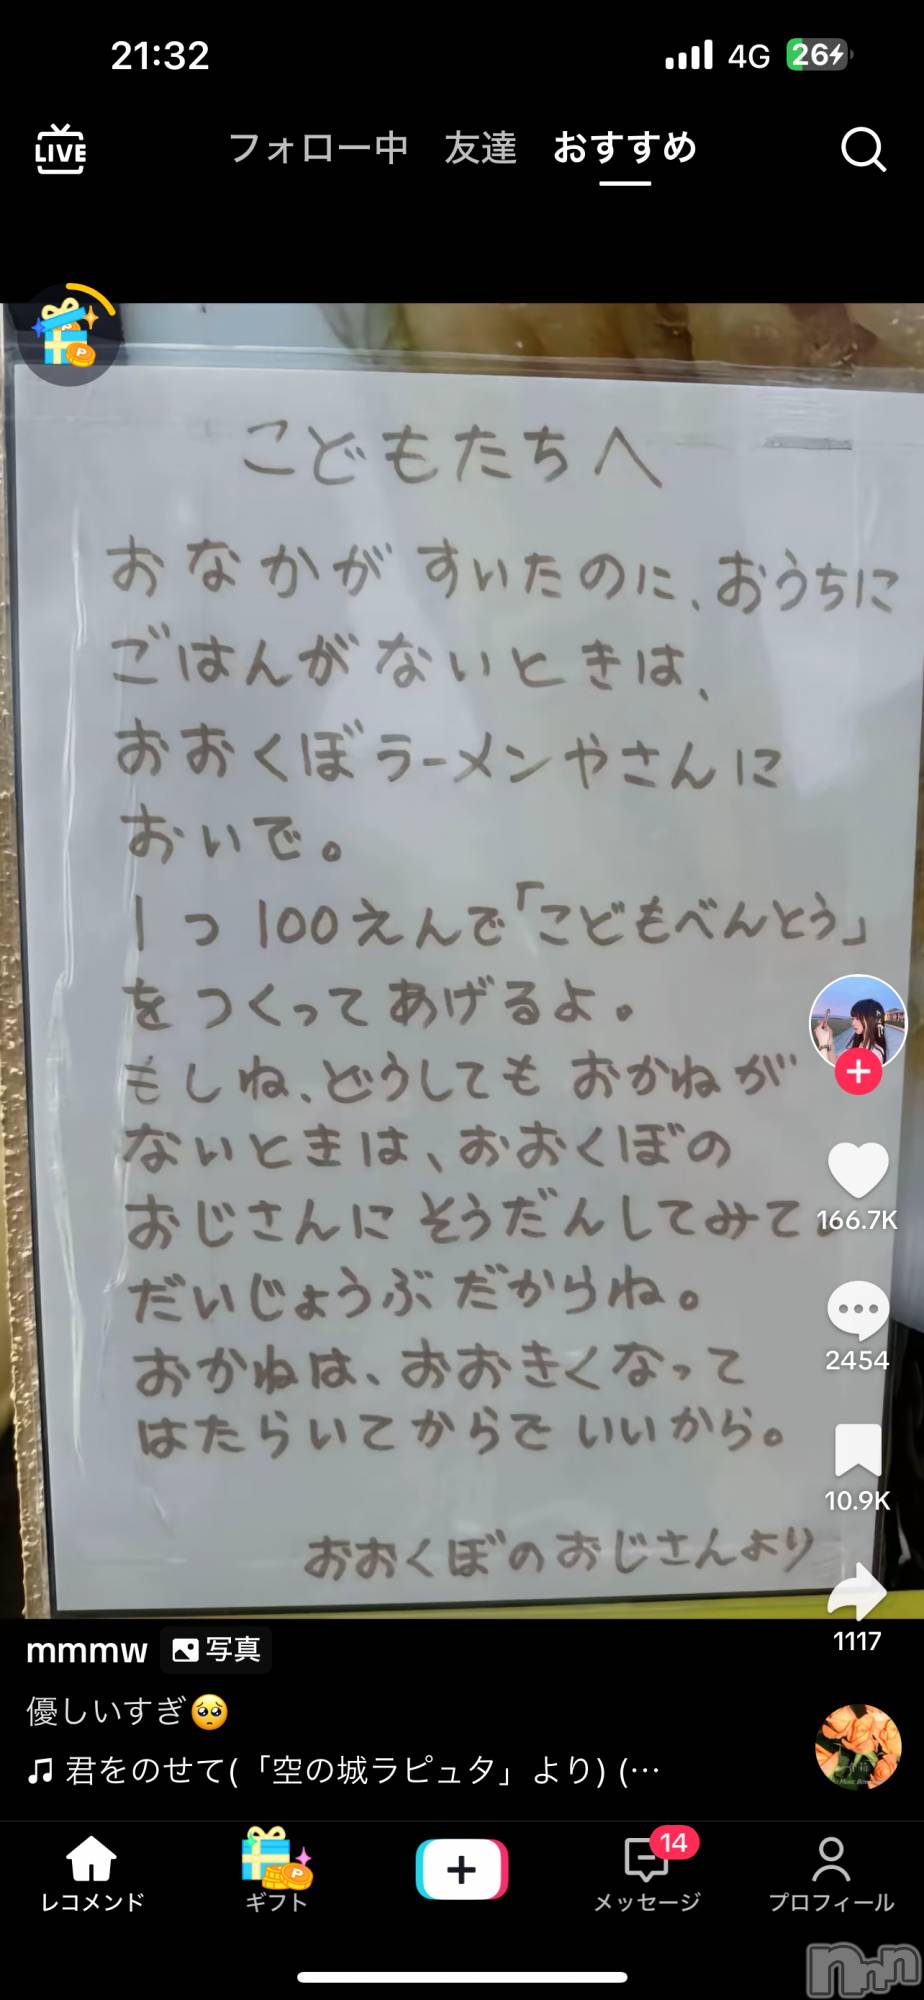 21:32
4G
26
LIVE
フォロー中 友達 おすすめ
こどもたちへ
おなかが すいたのに、おうちに
ごはんがないときは、
おおくぼラーメンやさんに
おいで。
1つ100えんで「こどもべんとう」
をつくってあげるよ。
もしね、どうしても おかねが
ないときは、おおくぼの
おじさんに そうだんしてみて。
だいじょうぶ だからね。
おかねは、おおきくなって
はたらいてからで いいから。
おおくぼのおじさんより
166.7K
2454
10.9K
1117
mmmw 写真
優しいすぎ🥺
君をのせて(「空の城ラピュタ」より) (…
レコメンド
ギフト
14
メッセージ
プロフィール